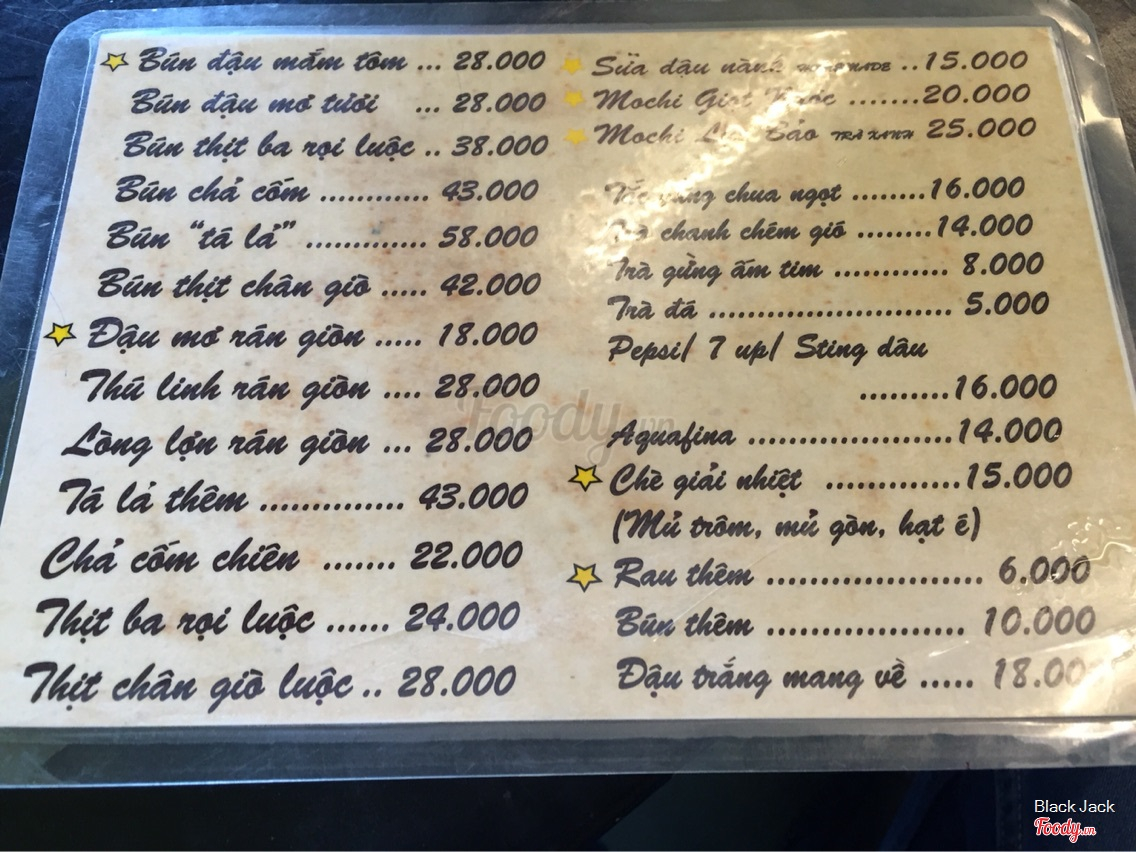 Bún đậu mắm tôm ... 28.000
Bún đậu mơ tươi ... 28.000
Bún thịt ba rọi luộc .. 38.000
Bún chả cốm ............ 43.000
Bún "tá lả" ............. 58.000
Bún thịt chân giò ..... 42.000
Đậu mơ rán giòn ..... 18.000
Thú linh rán giòn .... 28.000
Lòng lợn rán giòn ... 28.000
Tá lả thêm .............. 43.000
Chả cốm chiên ....... 22.000
Thịt ba rọi luộc ...... 24.000
Thịt chân giò luộc .. 28.000
Sữa đậu nành ..15.000
Mochi Giọt .......20.000
Mochi Bảo TRÀ XANH 25.000
chua ngọt ........16.000
Trà chanh chém gió ........14.000
Trà gừng ấm tim ............ 8.000
Trà đá ......................... 5.000
Pepsi/ 7 up/ Sting dâu
.........16.000
Aquafina .....................14.000
Chè giải nhiệt ..............15.000
(Mủ trôm, mủ gòn, hạt é)
Rau thêm ...................... 6.000
Bún thêm .................... 10.000
Đậu trắng mang về ..... 18.00
Foody.vn
Black Jack
Foody.vn